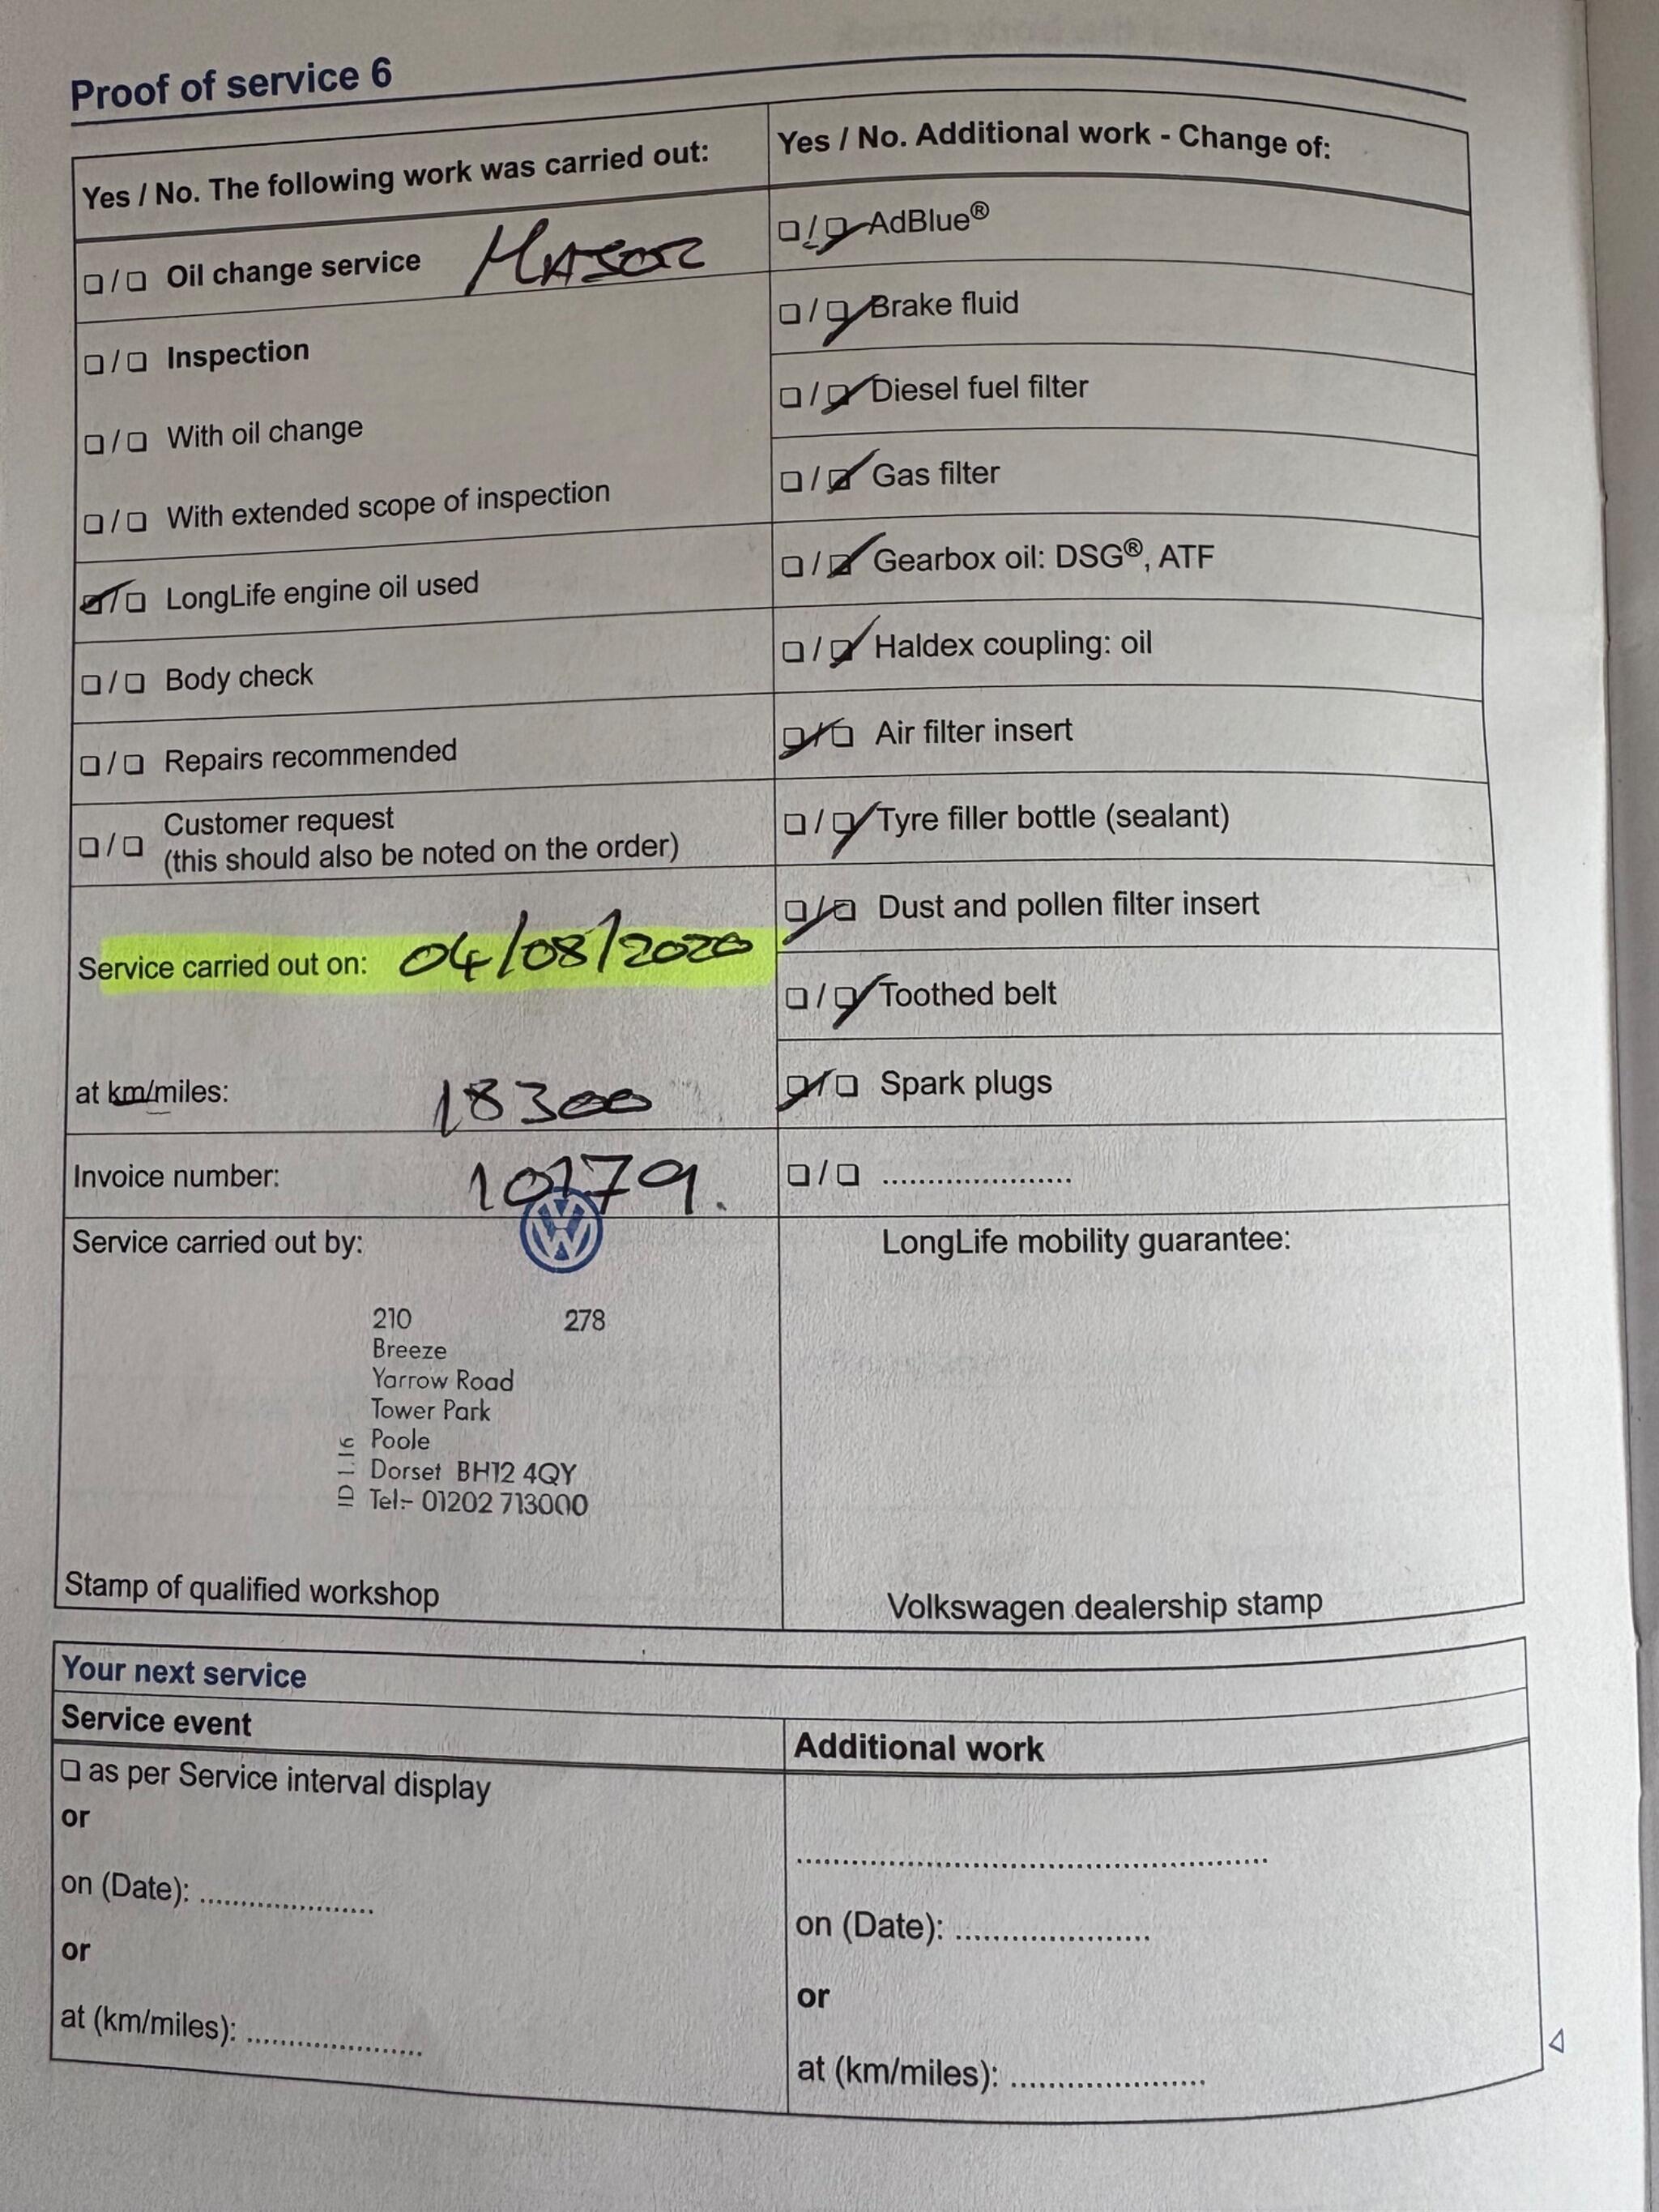 Proof of service 6
Yes / No. The following work was carried out:
Oil change service MAJOR
Inspection
With oil change
With extended scope of inspection
LongLife engine oil used
Body check
Repairs recommended
Customer request
(this should also be noted on the order)
Service carried out on: 04/08/2020
at km/miles: 18300
Invoice number: 10179.
Service carried out by:
210 278
Breeze
Yarrow Road
Tower Park
Poole
Dorset BH12 4QY
Tel:- 01202 713000
Stamp of qualified workshop
Yes / No. Additional work - Change of:
AdBlue®
Brake fluid
Diesel fuel filter
Gas filter
Gearbox oil: DSG®, ATF
Haldex coupling: oil
Air filter insert
Tyre filler bottle (sealant)
Dust and pollen filter insert
Toothed belt
Spark plugs
LongLife mobility guarantee:
Volkswagen dealership stamp
Your next service
Service event
as per Service interval display
or
on (Date): ......................
or
at (km/miles): ......................
Additional work
on (Date): ......................
or
at (km/miles): ......................